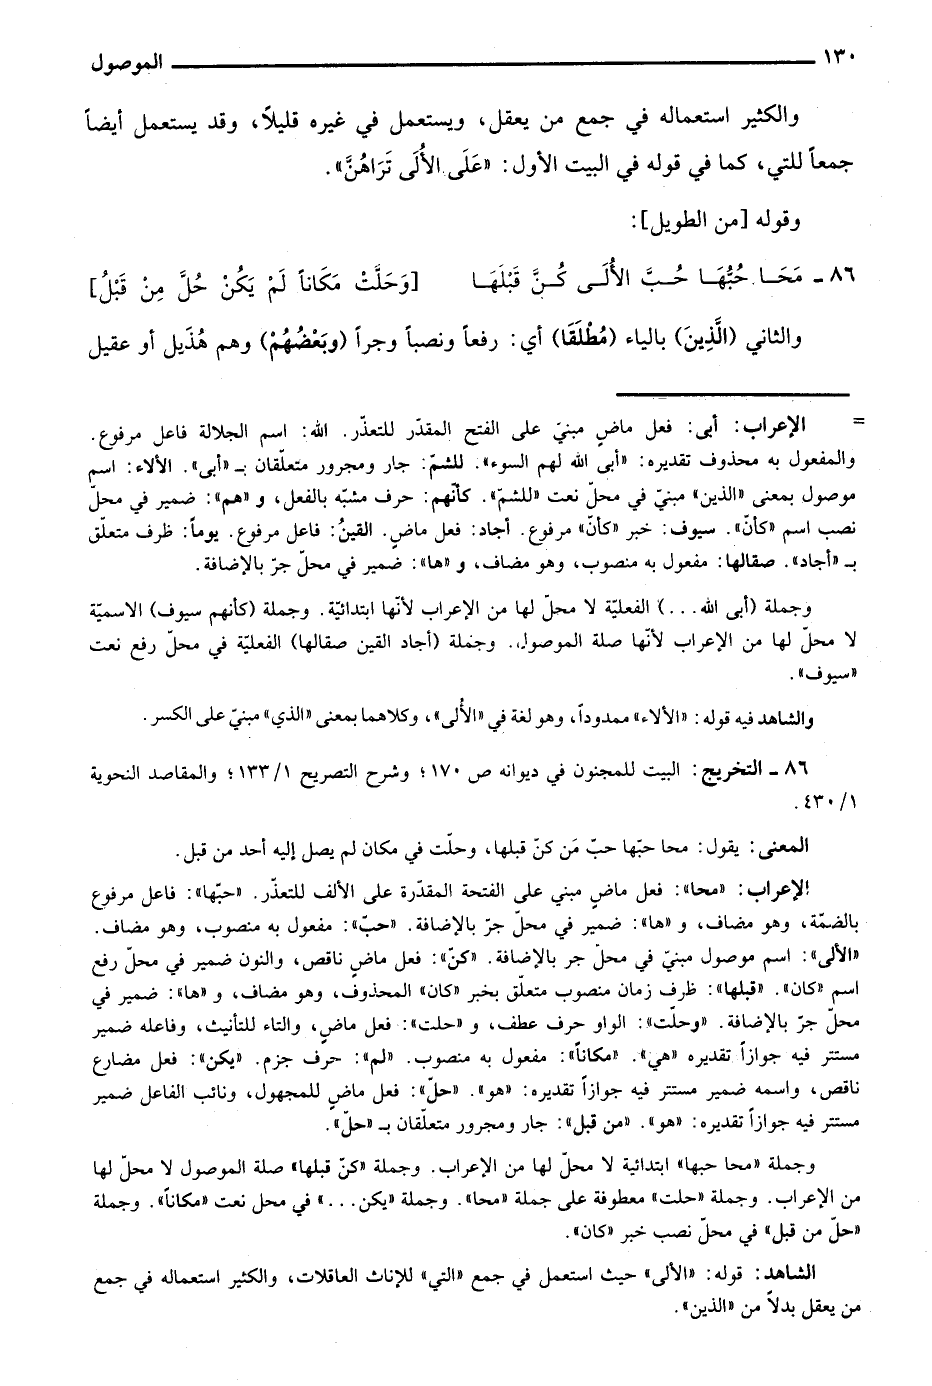 ١٣٠ الموصول
والكثير استعماله في جمع من يعقل، ويستعمل في غيره قليلاً، وقد يستعمل أيضاً
جمعاً للتي، كما في قوله في البيت الأول: «عَلَى الأُلَى تَرَاهُنَّ».
وقوله [من الطويل]:
٨٦ ـ مَحَا حُبُّهَا حُبَّ الأُلَى كُنَّ قَبْلَهَا [وَحَلَّتْ مَكَاناً لَمْ يَكُنْ حُلَّ مِنْ قَبْلُ]
والثاني (الَّذِينَ) بالياء (مُطْلَقَا) أي: رفعاً ونصباً وجراً (وبَعْضُهُمْ) وهم هُذَيل أو عقيل
= الإعراب: أبى: فعل ماضٍ مبنيّ على الفتح المقدّر للتعذّر. الله: اسم الجلالة فاعل مرفوع.
والمفعول به محذوف تقديره: «أبى الله لهم السوء». للشمّ: جار ومجرور متعلّقان بـ «أبى». الألاء: اسم
موصول بمعنى «الذين» مبنيّ في محلّ نعت «للشمّ». كأنّهم: حرف مشبّه بالفعل، و «هم»: ضمير في محلّ
نصب اسم «كأنّ». سيوف: خبر «كأنّ» مرفوع. أجاد: فعل ماضٍ. القينُ: فاعل مرفوع. يوماً: ظرف متعلّق
بـ «أجاد». صقالها: مفعول به منصوب، وهو مضاف، و «ها»: ضمير في محلّ جرّ بالإضافة.
وجملة (أبى الله ...) الفعليّة لا محلّ لها من الإعراب لأنّها ابتدائيّة. وجملة (كأنهم سيوف) الاسميّة
لا محلّ لها من الإعراب لأنّها صلة الموصول. وجملة (أجاد القين صقالها) الفعليّة في محلّ رفع نعت
«سيوف».
والشاهد فيه قوله: «الألاء» ممدوداً، وهو لغة في «الأُلى»، وكلاهما بمعنى «الذي» مبنيّ على الكسر.
٨٦ ـ التخريج: البيت للمجنون في ديوانه ص ١٧٠؛ وشرح التصريح ١/ ١٣٣؛ والمقاصد النحوية
١/ ٤٣٠.
المعنى: يقول: محا حبّها حبّ مَن كنّ قبلها، وحلّت في مكان لم يصل إليه أحد من قبل.
الإعراب: «محا»: فعل ماضٍ مبني على الفتحة المقدّرة على الألف للتعذّر. «حبّها»: فاعل مرفوع
بالضمّة، وهو مضاف، و «ها»: ضمير في محلّ جرّ بالإضافة. «حبّ»: مفعول به منصوب، وهو مضاف.
«الألى»: اسم موصول مبنيّ في محلّ جر بالإضافة. «كنّ»: فعل ماضٍ ناقص، والنون ضمير في محلّ رفع
اسم «كان». «قبلها»: ظرف زمان منصوب متعلّق بخبر «كان» المحذوف، وهو مضاف، و «ها»: ضمير في
محلّ جرّ بالإضافة. «وحلّت»: الواو حرف عطف، و «حلت»: فعل ماضٍ، والتاء للتأنيث، وفاعله ضمير
مستتر فيه جوازاً تقديره «هي». «مكاناً»: مفعول به منصوب. «لم»: حرف جزم. «يكن»: فعل مضارع
ناقص، واسمه ضمير مستتر فيه جوازاً تقديره: «هو». «حلّ»: فعل ماضٍ للمجهول، ونائب الفاعل ضمير
مستتر فيه جوازاً تقديره: «هو». «من قبل»: جار ومجرور متعلّقان بـ «حلّ».
وجملة «محا حبها» ابتدائية لا محلّ لها من الإعراب. وجملة «كنّ قبلها» صلة الموصول لا محلّ لها
من الإعراب. وجملة «حلت» معطوفة على جملة «محا». وجملة «يكن...» في محل نعت «مكاناً». وجملة
«حلّ من قبل» في محلّ نصب خبر «كان».
الشاهد: قوله: «الألى» حيث استعمل في جمع «التي» للإناث العاقلات، والكثير استعماله في جمع
من يعقل بدلاً من «الذين».